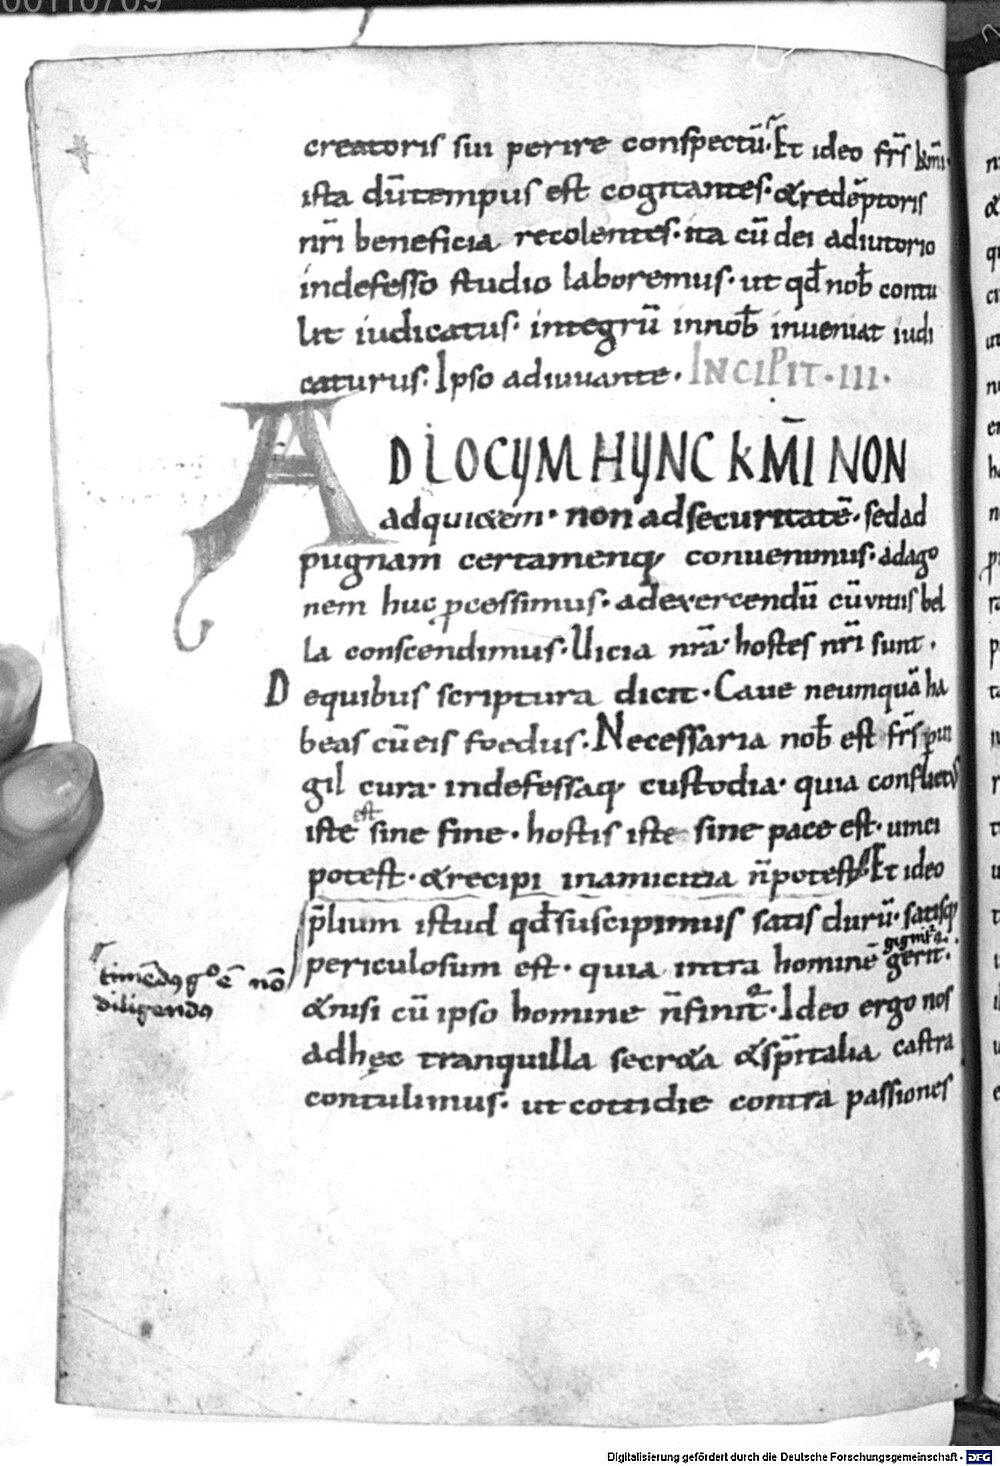 00110709
creatoris sui perire conspectū. Et ideo fr̄s k̄mi.
ista dū tempus est cogitantes. & redēptoris
nr̄i beneficia recolentes. ita cū dei adiutorio
indefesso studio laboremus. ut qđ nob̄ contu
lit iudicatus. integrū in nob̄ inueniat iudi
caturus. Ipso adiuuante. INCIPIT. III.
AD LOCUM HUNC KM̄I NON
ad qui&em. non ad securitatē. sed ad
pugnam certamenq; conuenimus. ad ago
nem huc ꝓcessimus. ad exercendū cū vitiis bel
la conscendimus. Uicia nr̄a. hostes nr̄i sunt.
De quibus scriptura dicit. Caue ne umquā ha
beas cū eis foedus. Necessaria nob̄ est fr̄s ꝑui
gil cura. indefessaq; custodia. quia conflictus
est
iste sine fine. hostis iste sine pace est. uinci
potest. & recipi in amicitia n̄ potest. Et ideo
p̄lium istud qđ suscipimus satis durū. satisq;
periculosum est. quia intra hominē gerit.
& nisi cū ipso homine n̄ finit᷑. Ideo ergo nos
ad hęc tranquilla secr&a & sp̄italia castra
contulimus. ut cottidie contra passiones
timēdꝰ gͦ ē nō
diligendꝰ
Digitalisierung gefördert durch die Deutsche Forschungsgemeinschaft - DFG